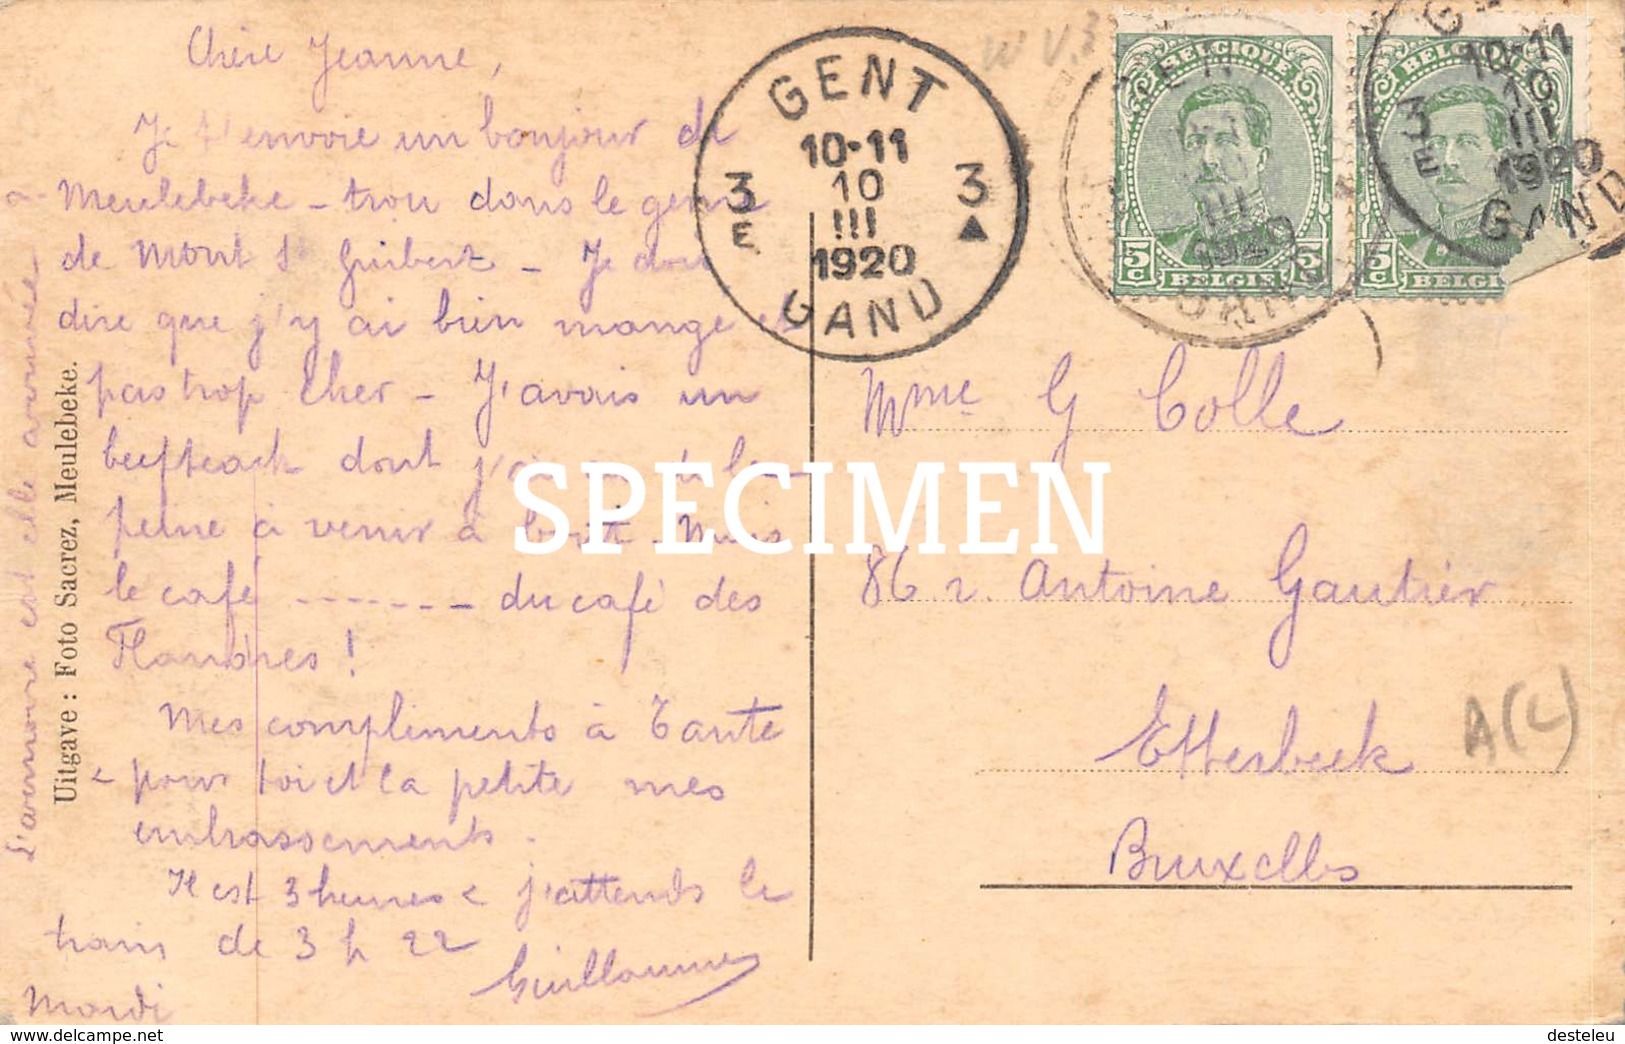 Chère Jeanne,
Je t'envoie un bonjour de
Meulebeke - trou dans le genre
de Mont St Guibert - Je dois
dire que j'y ai bien mangé et
pas trop cher - J'avais un
beefteack dont j'ai eu de la
peine à venir à bout - Mais
le café ------- du café des
Flandres !
Mes compliments à Tante
& pour toi et la petite mes
embrassements.
Il est 3 heures & j'attends le
train de 3 h 22
Guillaume
Mardi
L'armoire est elle arrivée
Uitgave : Foto Sacrez, Meulebeke.
GENT
10-11
10
III
1920
GAND
3
E
3
BELGIQUE
5c
BELGIE
5c
BELGIQUE
5c
BELGI
10-11
III
1920
GAND
3
E
III
1920
SPECIMEN
Mme G Colle
86 r. Antoine Gautier
Etterbeek
Bruxelles
A(L)
WV3
www.delcampe.net
desteleu